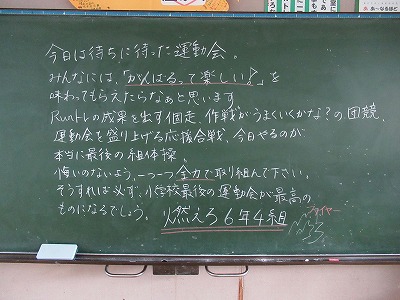 今日は待ちに待った運動会。
みんなには、「がんばるって楽しい!」を
味わってもらえたらなぁと思います
Runトレの成果を出す個走、作戦がうまくいくかな?の団競、
運動会を盛り上げる応援合戦、今日やるのが
本当に最後の組体操。
悔いのないよう、一つ一つ全力で取り組んで下さい。
そうすれば必ず、小学校最後の運動会が最高の
ものになるでしょう。
燃えろ6年4組
ファイヤー